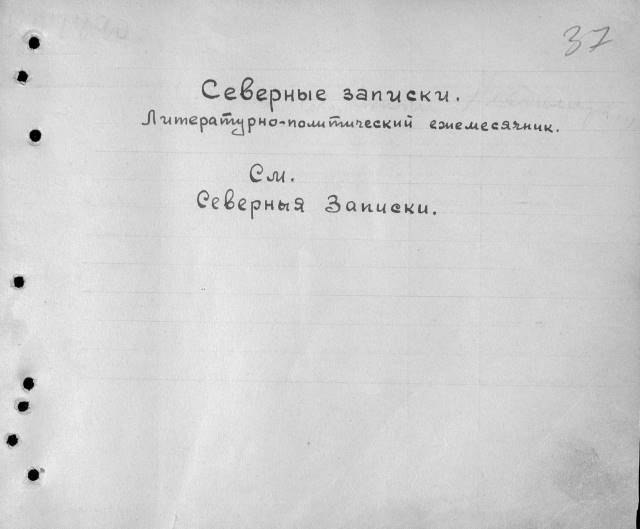 37
Северные записки.
Литературно-политический ежемесячник.
См.
Северныя Записки.